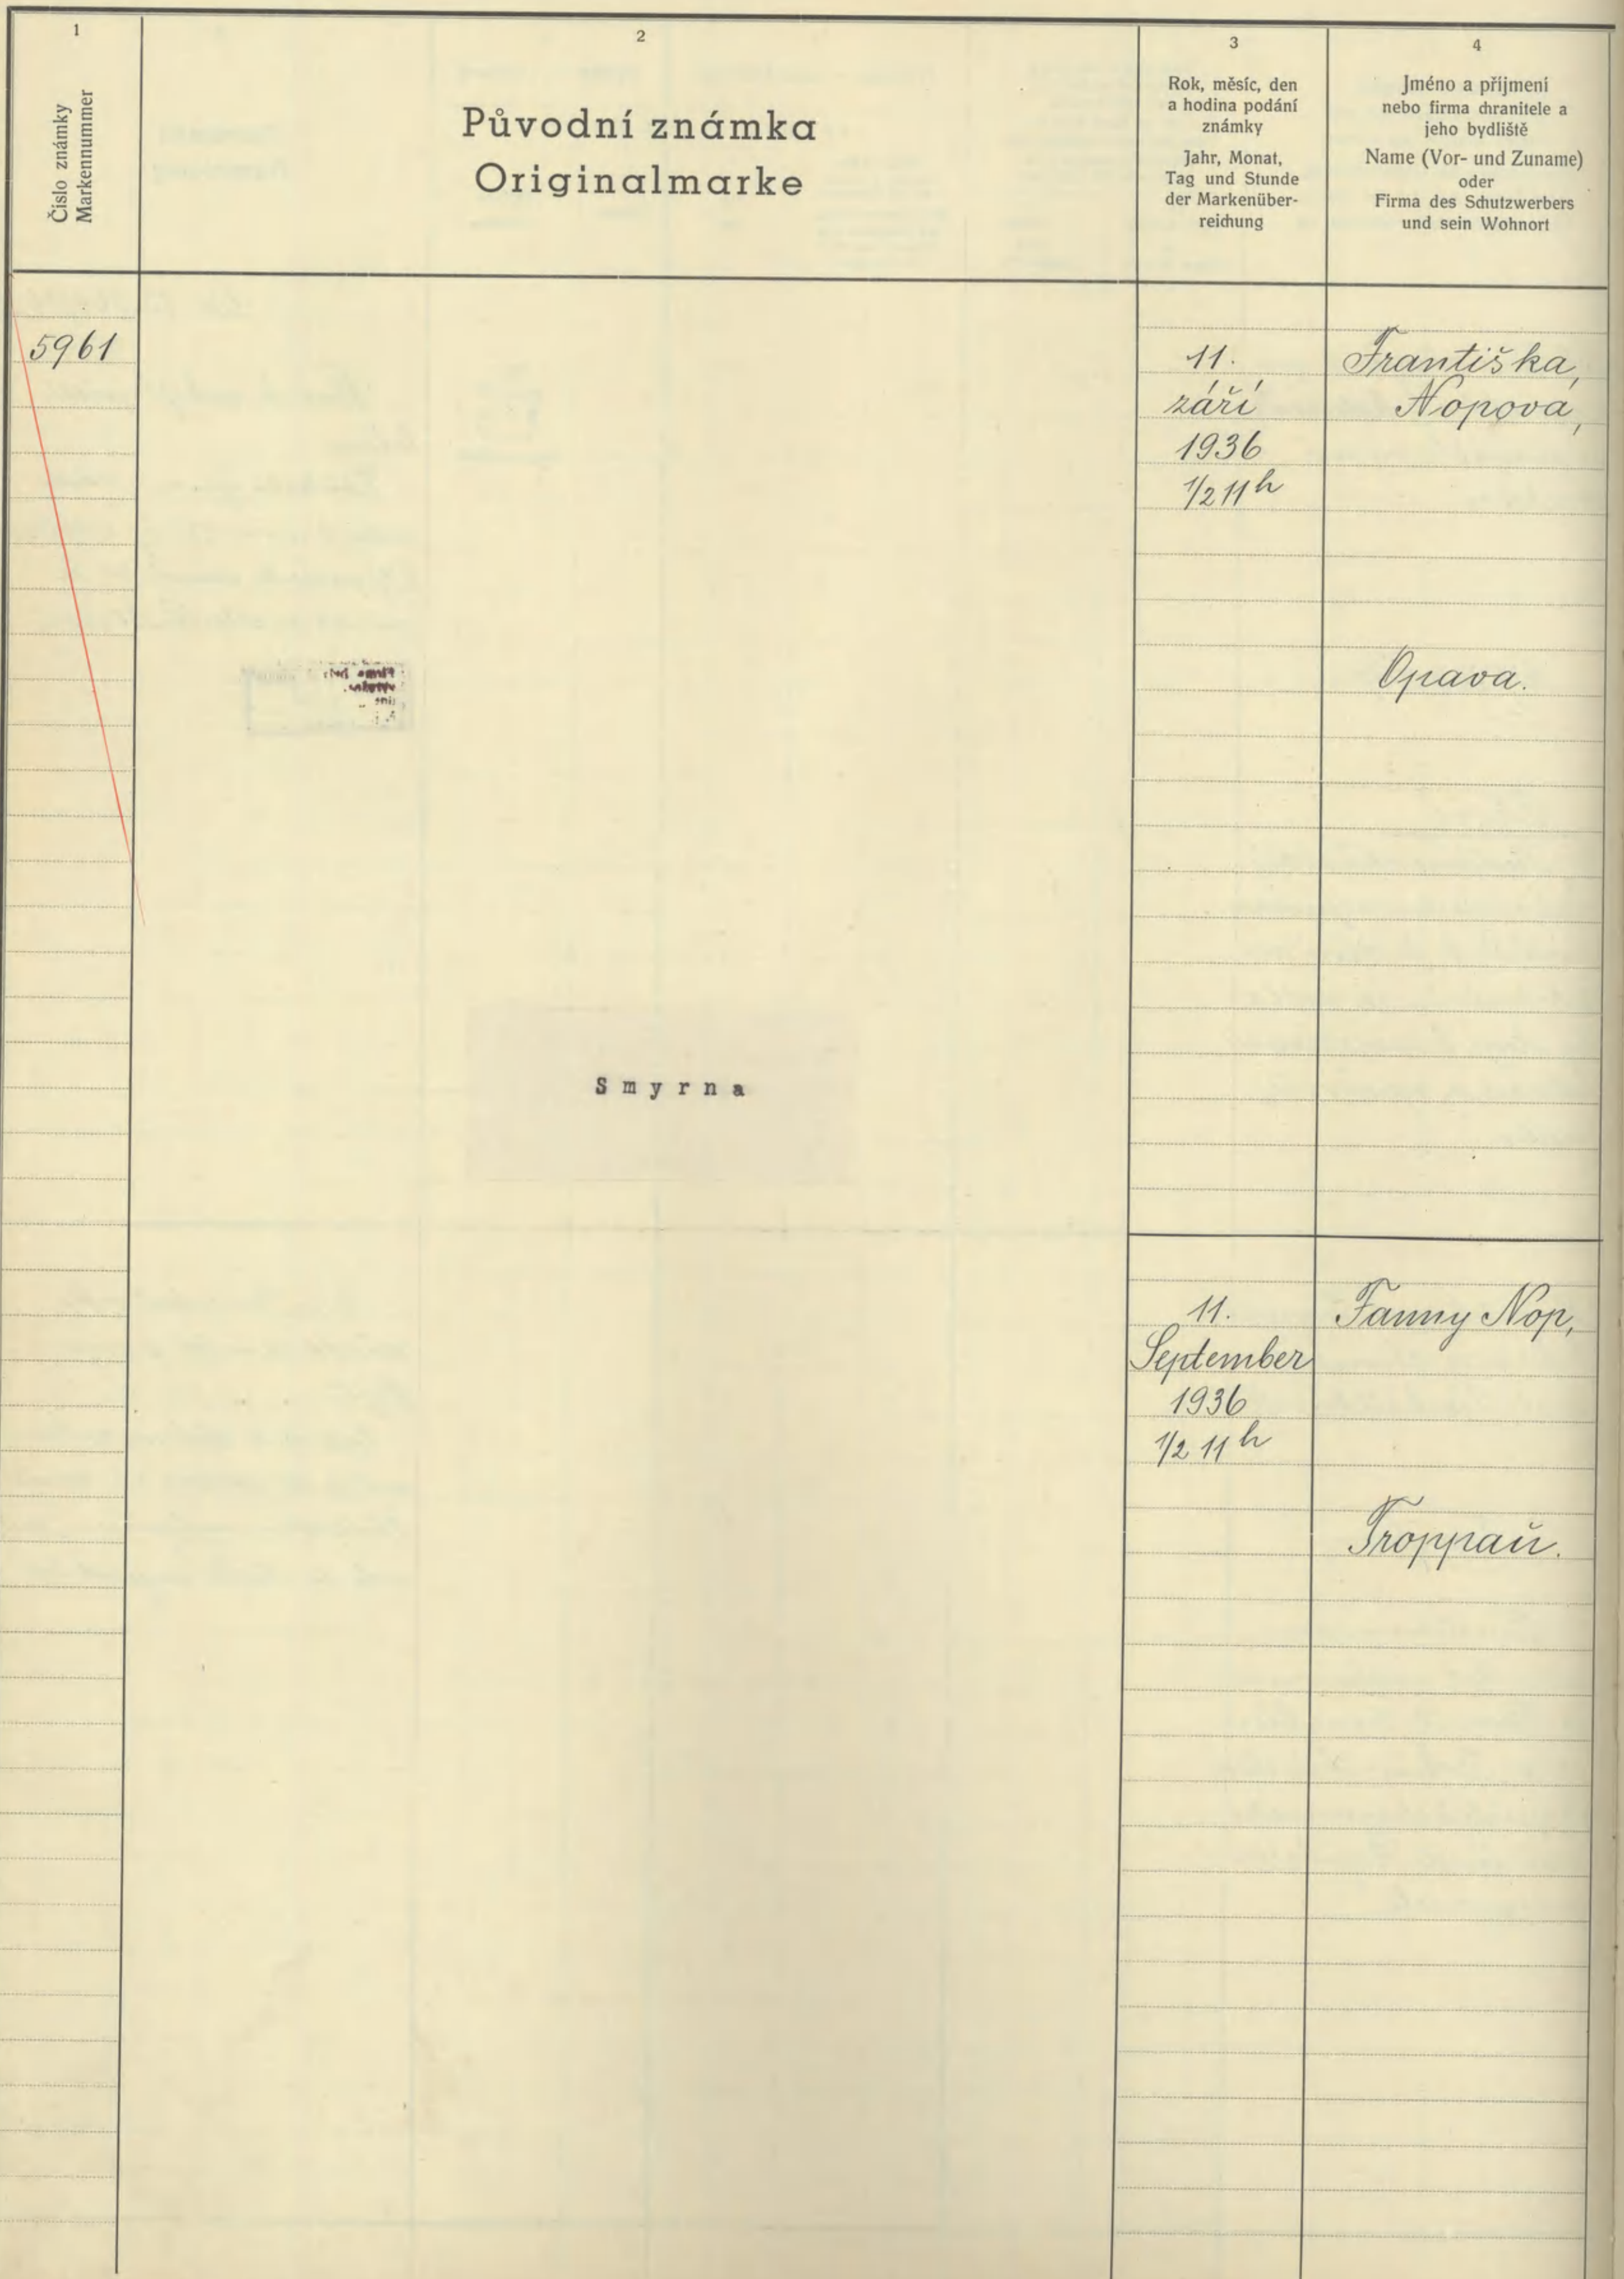 1
Číslo známky
Markennummer
2
Původní známka
Originalmarke
3
Rok, měsíc, den
a hodina podání
známky
Jahr, Monat,
Tag und Stunde
der Markenüber-
reichung
4
Jméno a příjmení
nebo firma chranitele a
jeho bydliště
Name (Vor- und Zuname)
oder
Firma des Schutzwerbers
und sein Wohnort
5961
11.
září
1936
1/2 11 h
Františka
Nopová,
Opava.
Smyrna
11.
September
1936
1/2 11 h
Fanny Nop,
Troppaŭ.